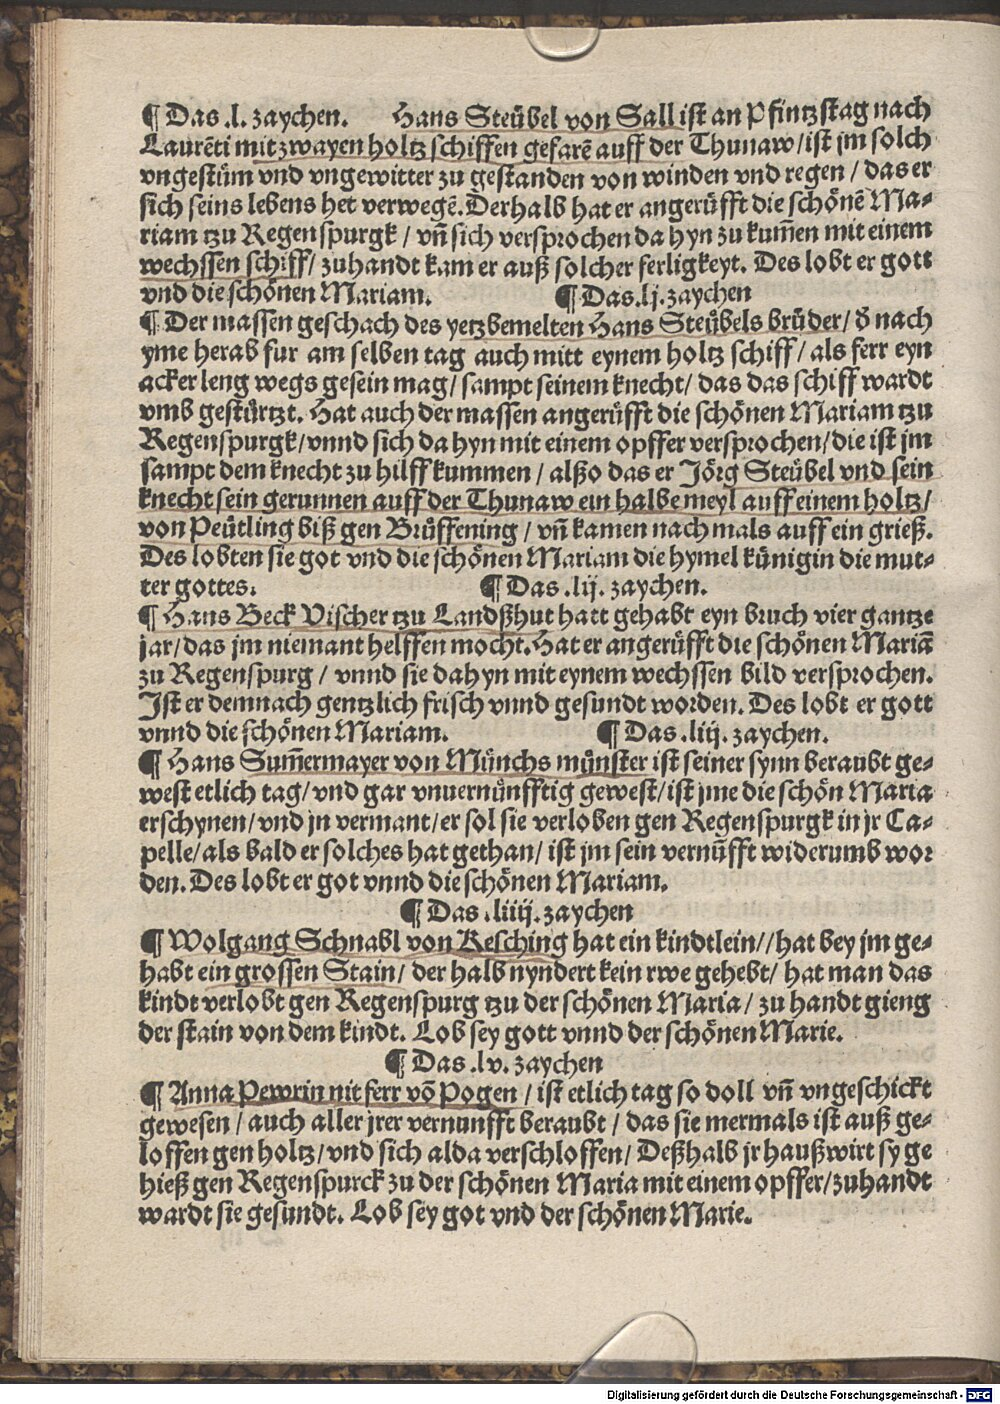 ¶ Das .l. zaychen. Hans Steübel von Sall ist an Pfintzstag nach
Laurẽti mit zwayen holtz schiffen gefarẽ auff der Thunaw/ist jm solch
vngestüm vnd vngewitter zu gestanden von winden vnd regen / das er
sich seins lebens het verwegẽ. Derhalb hat er angerüfft die schönẽ Ma⸗
riam tzu Regenspurgk / vñ sich versprochen da hyn zu kum̃en mit einem
wechssen schiff/ zuhandt kam er auß solcher ferligkeyt. Des lobt er gott
vnd die schönen Mariam. ¶ Das .lj. zaychen
¶ Der massen geschach des yetzbemelten Hans Steübels brüder/ d̛ nach
yme herab fur am selben tag auch mitt eynem holtz schiff/ als ferr eyn
acker leng wegs gesein mag/ sampt seinem knecht/ das das schiff wardt
vmb gestürtzt. Hat auch der massen angerüfft die schönen Mariam tzu
Regenspurgk/vnnd sich da hyn mit einem opffer versprochen/die ist jm
sampt dem knecht zu hilff kummen / alßo das er Jörg Steübel vnd sein
knecht sein gerunnen auff der Thunaw ein halbe meyl auff einem holtz/
von Peütling biß gen Brüffening / vñ kamen nach mals auff ein grieß.
Des lobten sie got vnd die schönen Mariam die hymel künigin die mut⸗
ter gottes. ¶ Das .lij. zaychen.
¶ Hans Beck Vischer tzu Landßhut hatt gehabt eyn bruch vier gantze
jar/das jm niemant helffen mocht. Hat er angerüfft die schönen Mariã
zu Regenspurg / vnnd sie dahyn mit eynem wechssen bild versprochen.
Jst er demnach gentzlich frisch vnnd gesundt worden. Des lobt er gott
vnnd die schönen Mariam. ¶ Das .liij. zaychen.
¶ Hans Sum̃ermayer von Münchs münster ist seiner synn beraubt ge⸗
west etlich tag/vnd gar vnuernünfftig gewest/ist jme die schön Maria
erschynen/vnd jn vermant/er sol sie verloben gen Regenspurgk in jr Ca⸗
pelle/als bald er solches hat gethan/ ist jm sein vernũfft widerumb wor
den. Des lobt er got vnnd die schönen Mariam.
¶ Das .liiij. zaychen
¶ Wolgang Schnabl von Kesching hat ein kindtlein//hat bey jm ge⸗
habt ein grossen Stain/ der halb nyndert kein rwe gehebt/ hat man das
kindt verlobt gen Regenspurg tzu der schönen Maria/ zu handt gieng
der stain von dem kindt. Lob sey gott vnnd der schönen Marie.
¶ Das .lv. zaychen
¶ Anna Pewrin nit ferr võ Pogen / ist etlich tag so doll vñ vngeschickt
gewesen / auch aller jrer vernunfft beraubt / das sie mermals ist auß ge⸗
loffen gen holtz/vnd sich alda verschloffen/ Deßhalb jr haußwirt sy ge
hieß gen Regenspurck zu der schönen Maria mit einem opffer/zuhandt
wardt sie gesundt. Lob sey got vnd der schönen Marie.
Digitalisierung gefördert durch die Deutsche Forschungsgemeinschaft - DFG